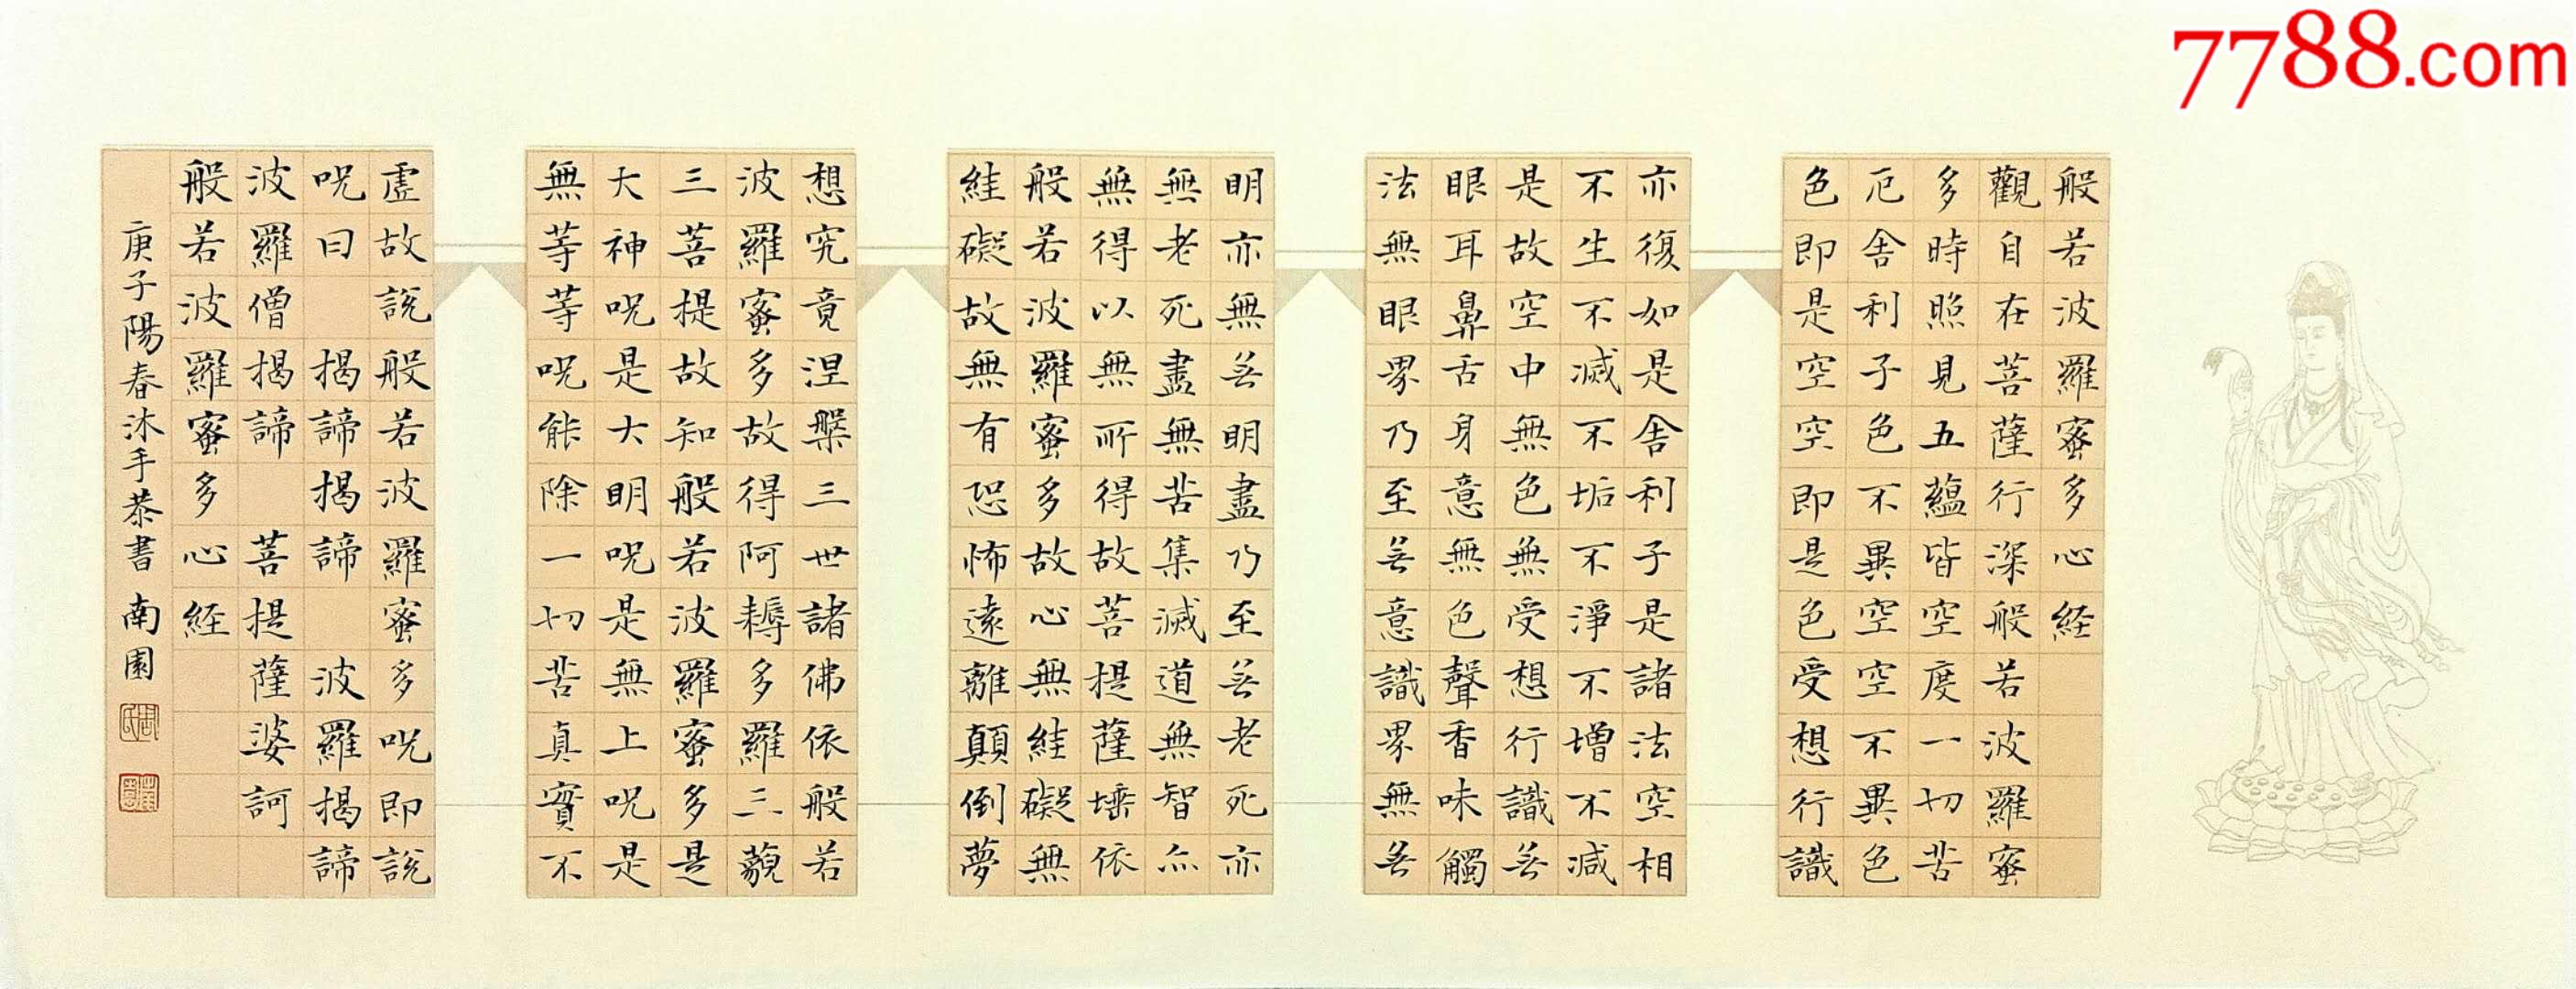 7788.com
般若波羅蜜多心経
觀自在菩薩行深般若波羅蜜
多時照見五蘊皆空度一切苦
厄舍利子色不異空空不異色
色即是空空即是色受想行識
亦復如是舍利子是諸法空相
不生不滅不垢不淨不增不減
是故空中無色無受想行識无
眼耳鼻舌身意無色聲香味觸
法無眼界乃至无意識界無无
明亦無无明盡乃至无老死亦
無老死盡無苦集滅道無智亦
無得以無所得故菩提薩埵依
般若波羅蜜多故心無絓礙無
絓礙故無有恐怖遠離顛倒夢
想究竟涅槃三世諸佛依般若
波羅蜜多故得阿耨多羅三藐
三菩提故知般若波羅蜜多是
大神呪是大明呪是無上呪是
無等等呪能除一切苦真實不
虛故說般若波羅蜜多呪即說
呪曰 揭諦揭諦 波羅揭諦
波羅僧揭諦 菩提薩婆訶
般若波羅蜜多心経
庚子陽春沐手恭書 南園
周氏